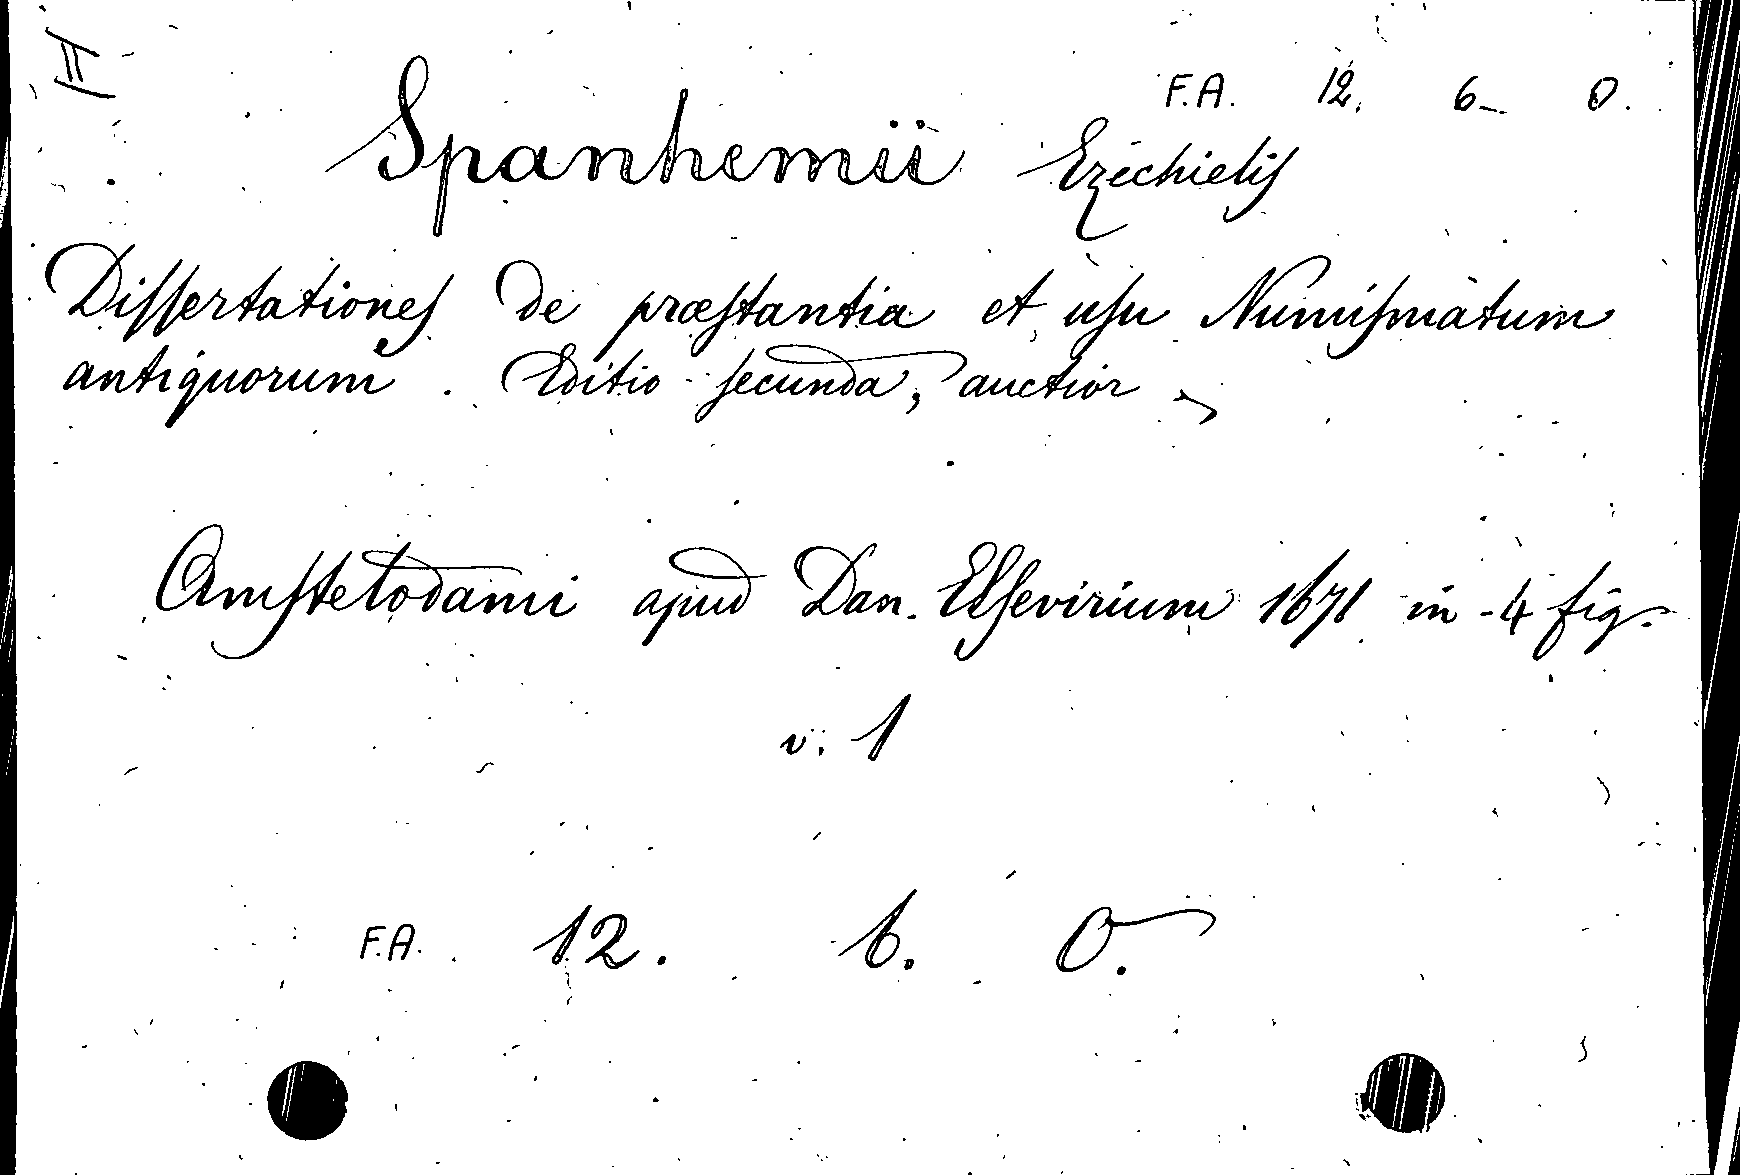 II
F.A. 12. 6 0.
Spanhemii Ezechielis
Dissertationes de præstantia et usu Numismatum
antiquorum. Editio secunda, auctior
Amstelodami apud Dan. Elsevirium 1671 in-4 fig.
v. 1
F.A. 12. 6. O.